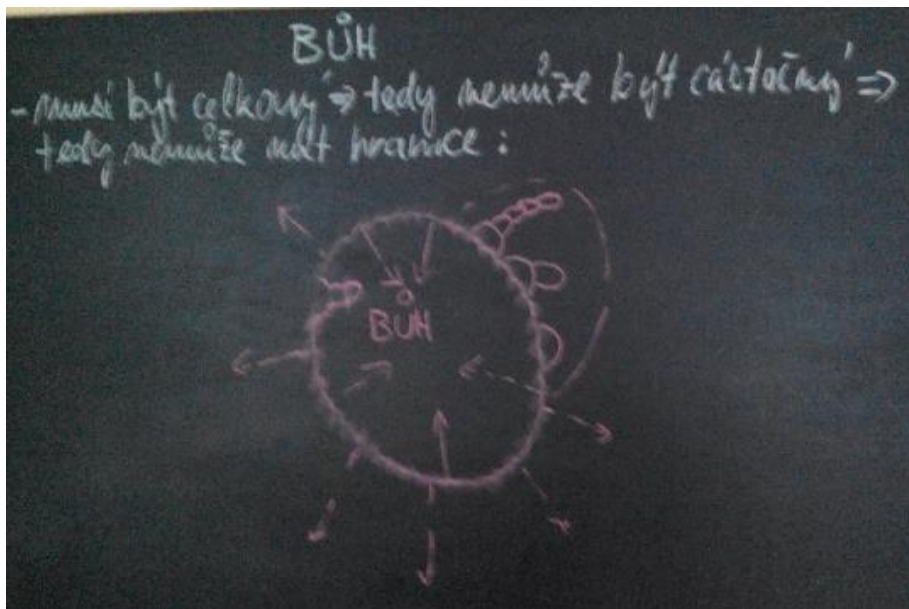 BŮH
- musí být celkový ⇒ tedy nemůže být částečný ⇒
tedy nemůže mít hranice :
BŮH